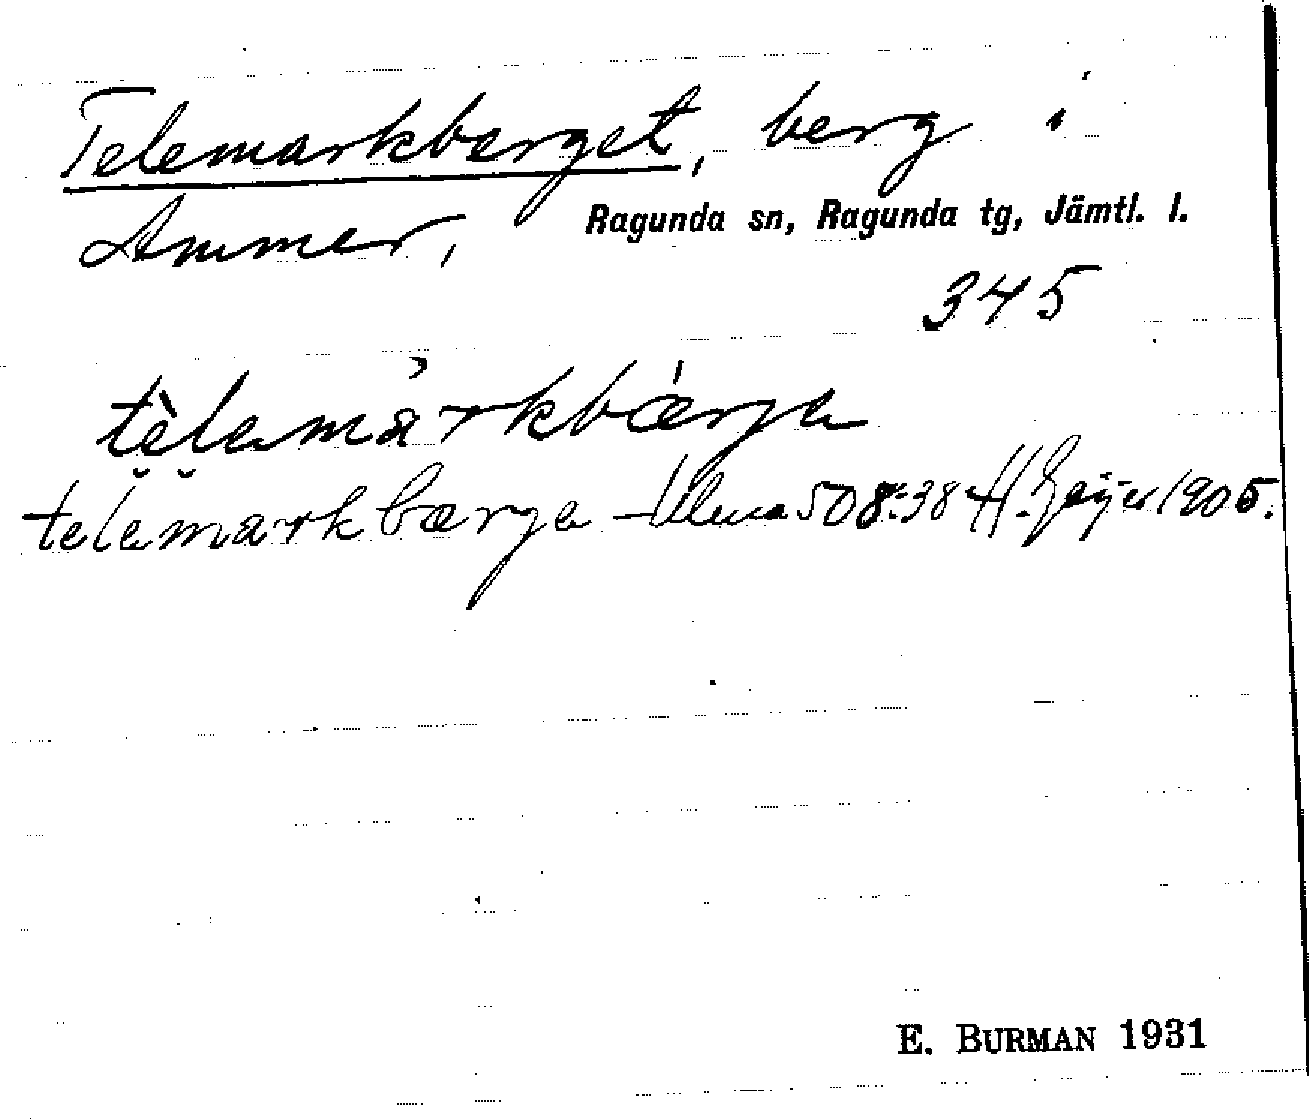 Telemarkberget, berg i
Ammer, Ragunda sn, Ragunda tg, Jämtl. l.
345
tèlemàrkbǽrje
telemarkbærje Ulma 508:38 H. Geijer 1905.
E. BURMAN 1931